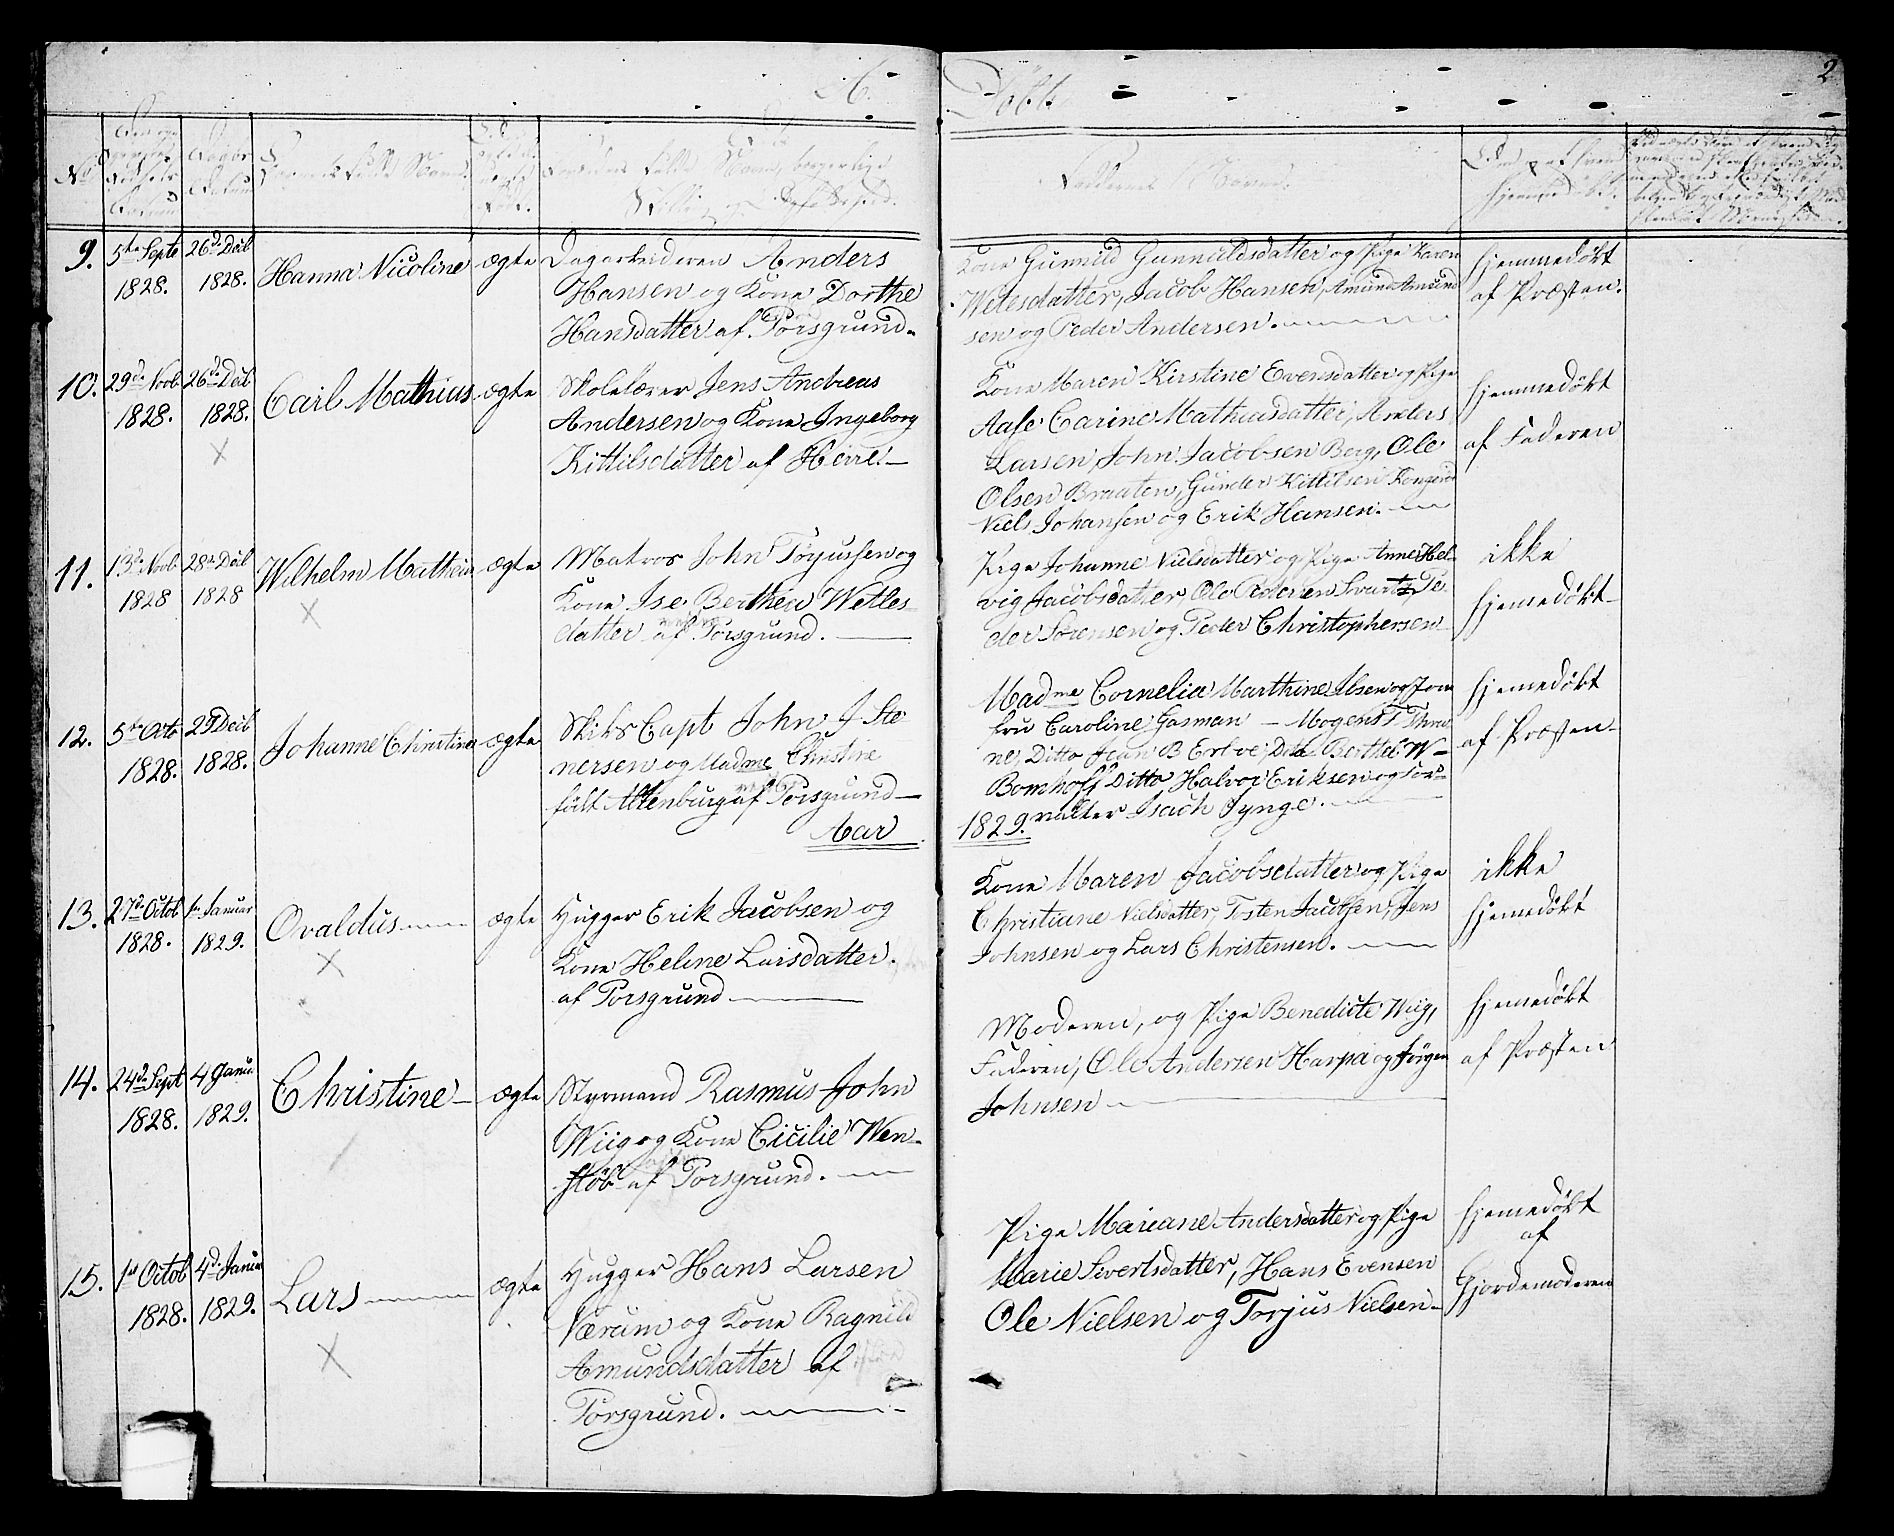 Døbte
2
No
Barnets fulde Navn.
Faddernes Navne.
9.
5te Septb
1828.
26d Decb
1828.
Hanna Nicoline
ægte
Dagarbeideren Anders
Hansen og Kone Dorthe
Hansdatter af Porsgrund.
Kone Gunnild Gunnuldsdatter og Pige Karen
Wetlesdatter, Jacob Hansen, Amund Amund
sen og Peder Andersen.
hjemmedøbt
af Præsten.
10.
29de Novb
1828.
26d Decb
1828.
Carl Mathius
ægte
Skolelærer Jens Andreas
Andersen og Kone Ingeborg
Kittilsdatter af Herre.
Kone Maren Kirstine Evensdatter og Pige
Aase Carine Mathiasdatter, Anders
Larsen, John Jacobsen Berg, Ole
Olsen Braaten, Gunder Kittilsen
Niels Johansen og Erik Hansen.
hjemmedøbt
af Faderen
11.
13de Novb
1828
28de Decb
1828
Wilhelm Mathias
ægte
Matros John Torjussen og
Kone Ise Berthea Wetles
datter af Porsgrund.
Pige Johanne Nielsdatter og Pige Anne Hel
vig Jacobsdatter, Ole Pedersen Svartz, Pe
der Sørensen og Peder Christophersen
ikke
hjemedøbt
12.
5te Octb
1828.
29 Decb
1828.
Johanne Christine
ægte
Skibs Capt John J Ste
nersen og Madme Christine
født Altenburg af Porsgrund
Aar
Madme Cornelia Marthine Ibsen og Jom
fru Caroline Gasman — Mogens T Thra
ne, Ditto Jean B Erboe, Dito Berthel W
Bomhoff, Ditto Halvor Eriksen og For
1829.
valter Isach Jynge.
hjemedøbt
af Præsten
13.
27de Octob
1828.
1ste Januar
1829.
Ovaldus
ægte
Hugger Erik Jacobsen og
Kone Helene Larsdatter
af Porsgrund
Kone Maren Jacobsdatter og Pige
Christiane Nielsdatter, Tosten Jacobsen, Jens
Johnsen og Lars Christensen.
ikke
hjemedøbt
14.
24de Sept
1828.
4 Janu
1829.
Christine
ægte
Styrmand Rasmus John
Wiig og Kone Cicilie Wen
støb af Porsgrund.
Moderen, og Pige Benedicte Wiig,
Faderen, Ole Andersen Harpa og Jørgen
Johnsen
hjemedøbt
af Præsten
15.
1st Octob
1828.
4d Janua
1829.
Lars
ægte
Hugger Hans Larsen
Værum og Kone Ragnild
Amundsdatter af
Porsgrund.
Pige Mariane Andersdatter og Pige
Marie Sivertsdatter, Hans Evensen
Ole Nielsen og Torjus Nielsen
hjemedøbt
af
Gjordemoderen